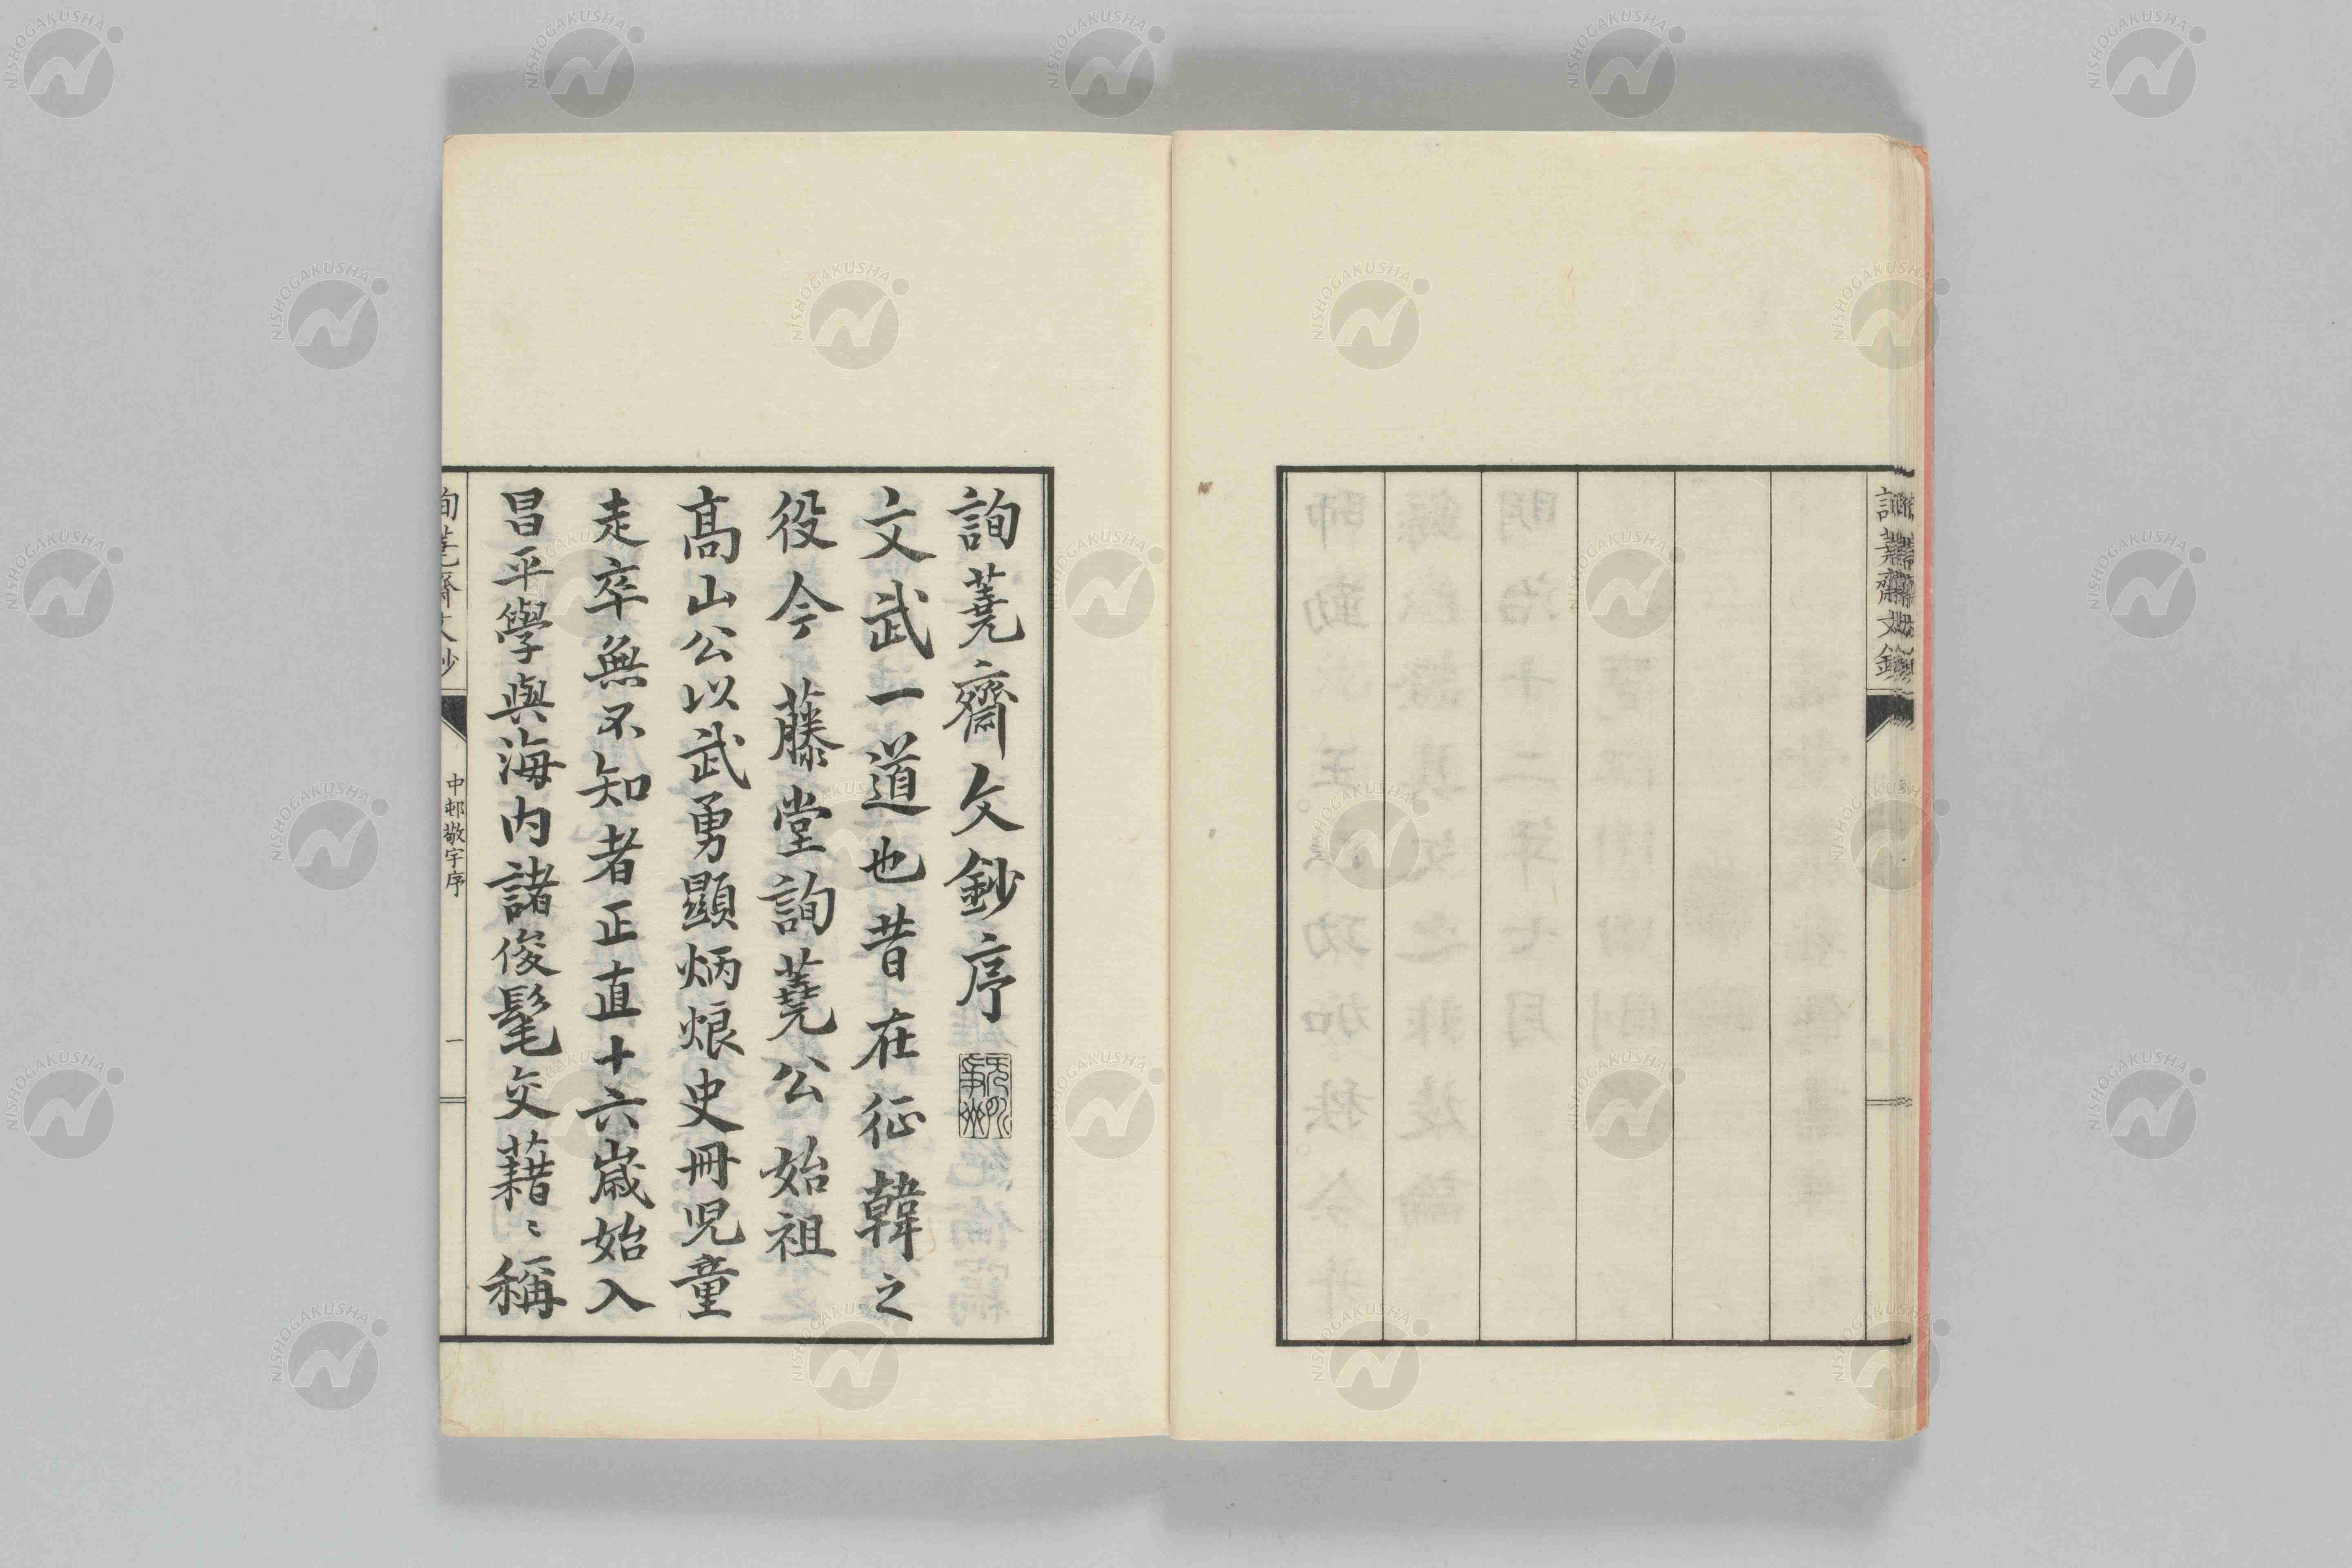 詢蕘齋文鈔
詢蕘齋文鈔序
文武一道也昔在征韓之
役今藤堂詢蕘公始祖
髙山公以武勇顯炳烺史冊児童
走卒無不知者正直十六歲始入
昌平學與海内諸俊髦交藉〻稱
詢蕘齋文鈔
中邨敬宇序
一
NISHOGAKUSHA